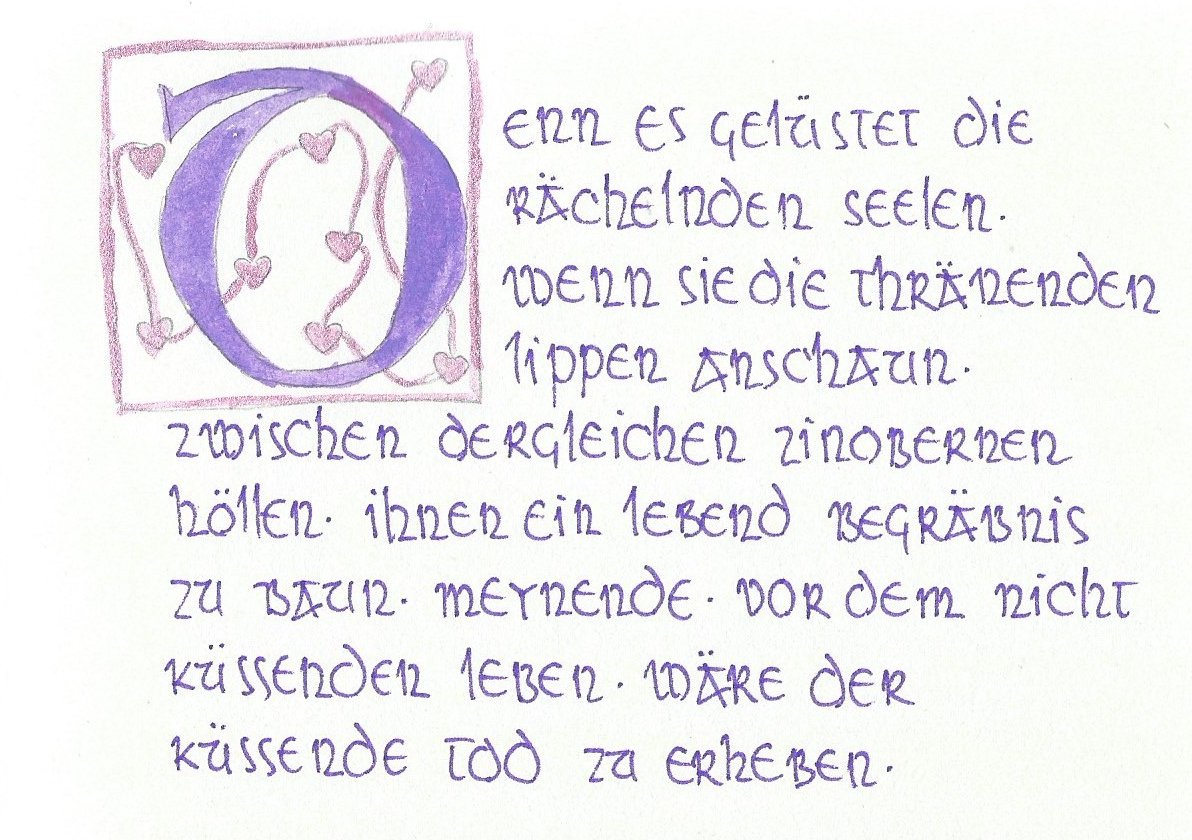 Denn es gelüstet die
rächelnden seelen.
wenn sie die thränenden
lippen anschaun.
zwischen dergleichen zinobernen
höllen. ihnen ein lebend begräbnis
zu baun. meynende. vor dem nicht
küssenden leben. wäre der
küssende tod zu erheben.